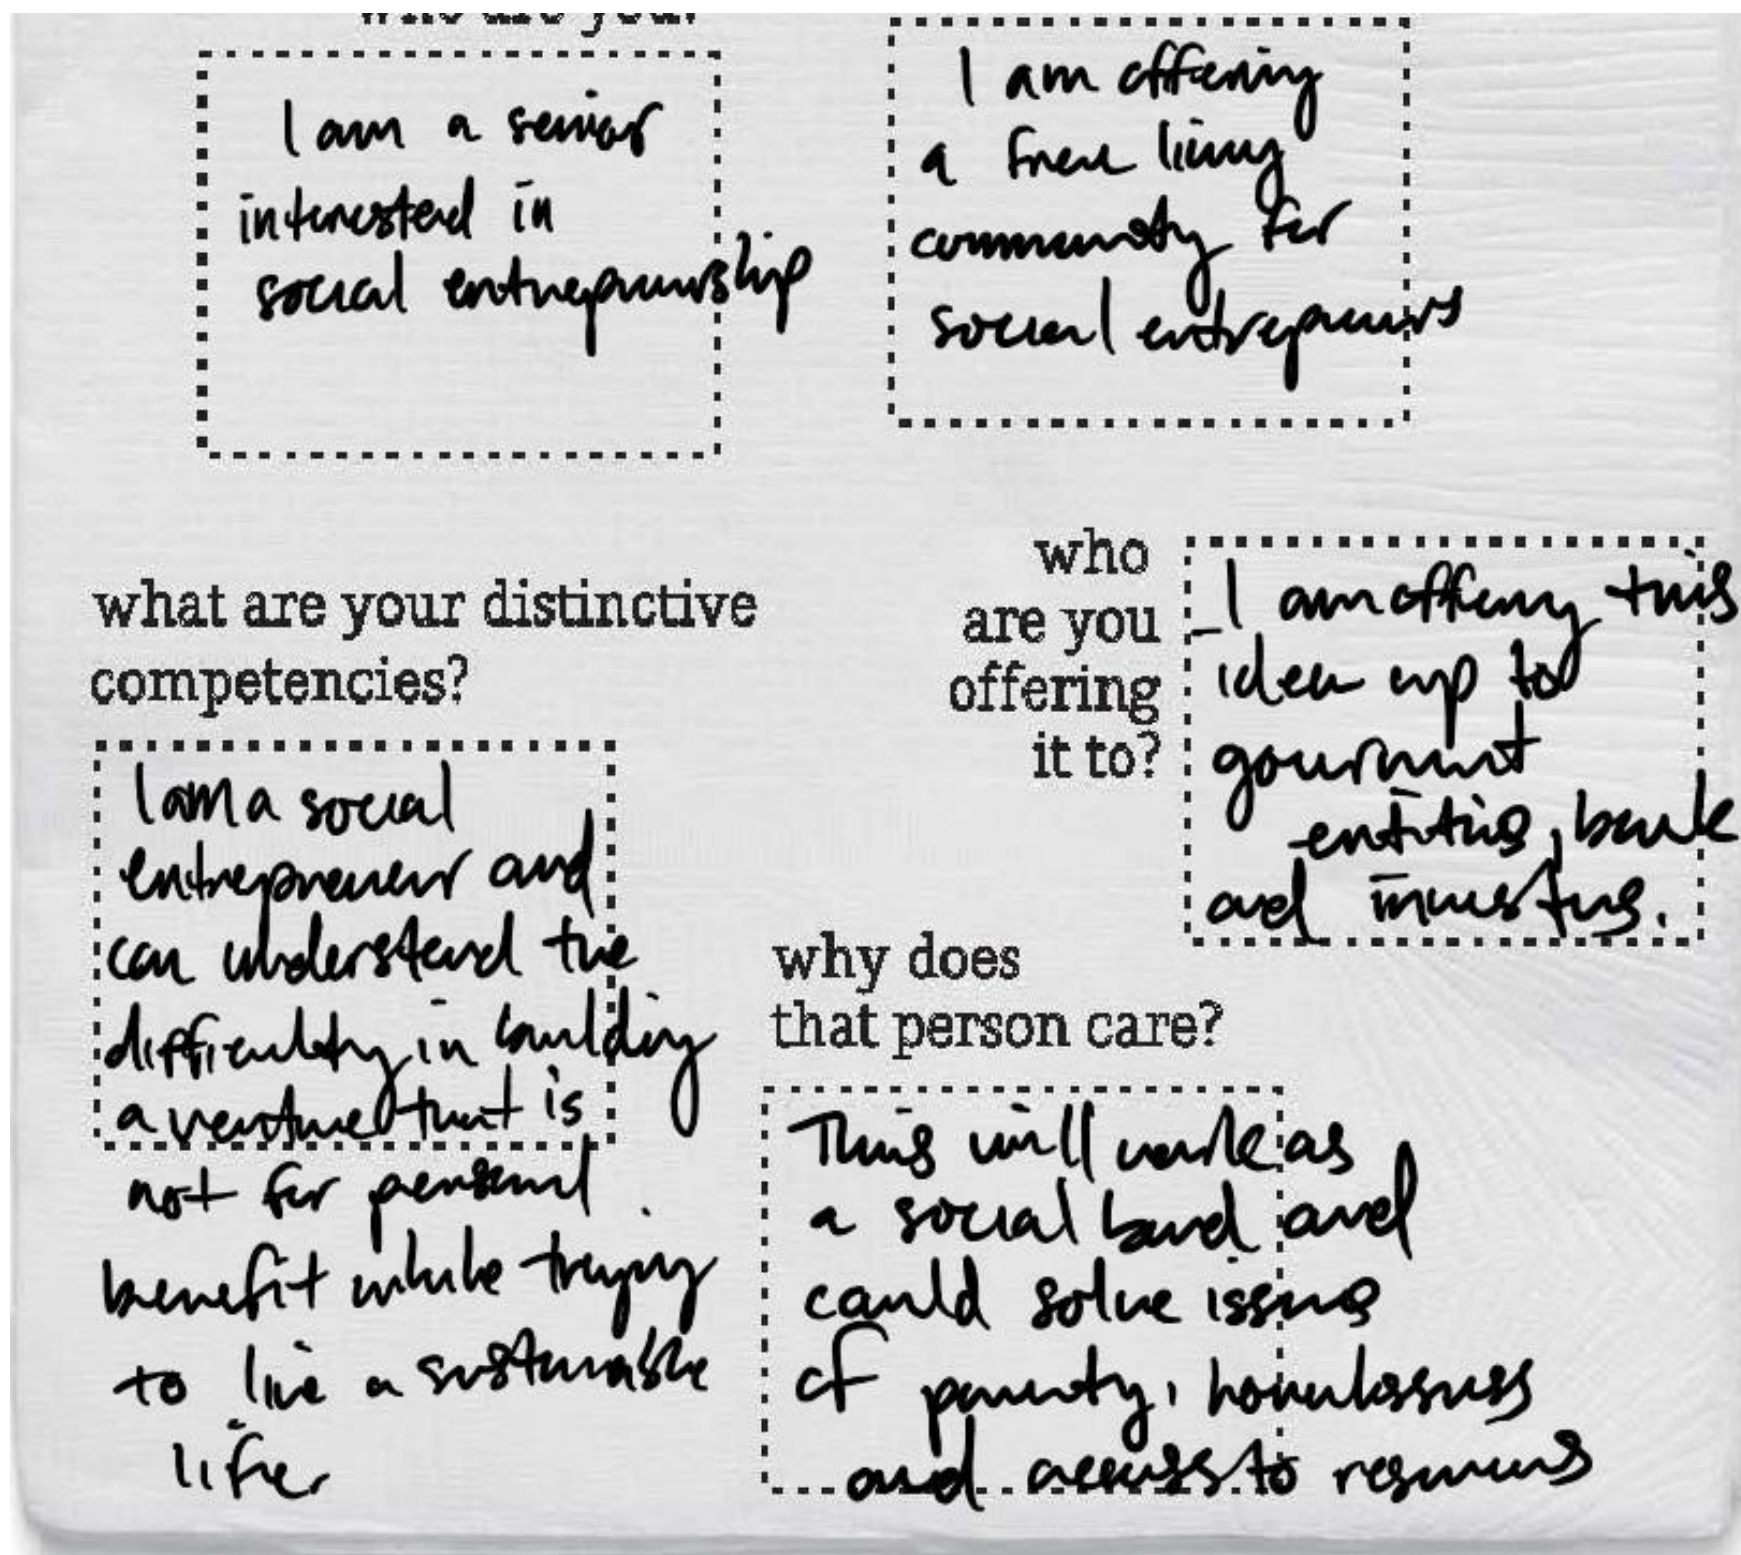 who are you?
I am a senior
interested in
social entrepreneurship
I am offering
a free living
community for
social entrepreneurs
what are your distinctive
competencies?
I am a social
entrepreneur and
can understand the
difficulty in building
a venture that is
not for personal
benefit while trying
to live a sustainable
life.
who
are you
offering
it to?
I am offering this
idea up to
government
entities, bank
and investors.
why does
that person care?
This will work as
a social bond and
could solve issues
of poverty, homelessness
and access to resources